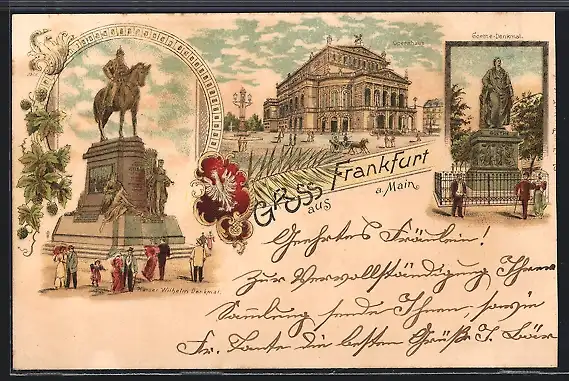 Opernhaus
Goethe-Denkmal.
Gruss
aus
Frankfurt
a. Main
Kaiser Wilhelm Denkmal.
Geehrtes Fräulein!
Zur Vervollständigung Ihrer
Sammlung sende Ihnen sowie
Fr. Tante die besten Grüße J. Bär